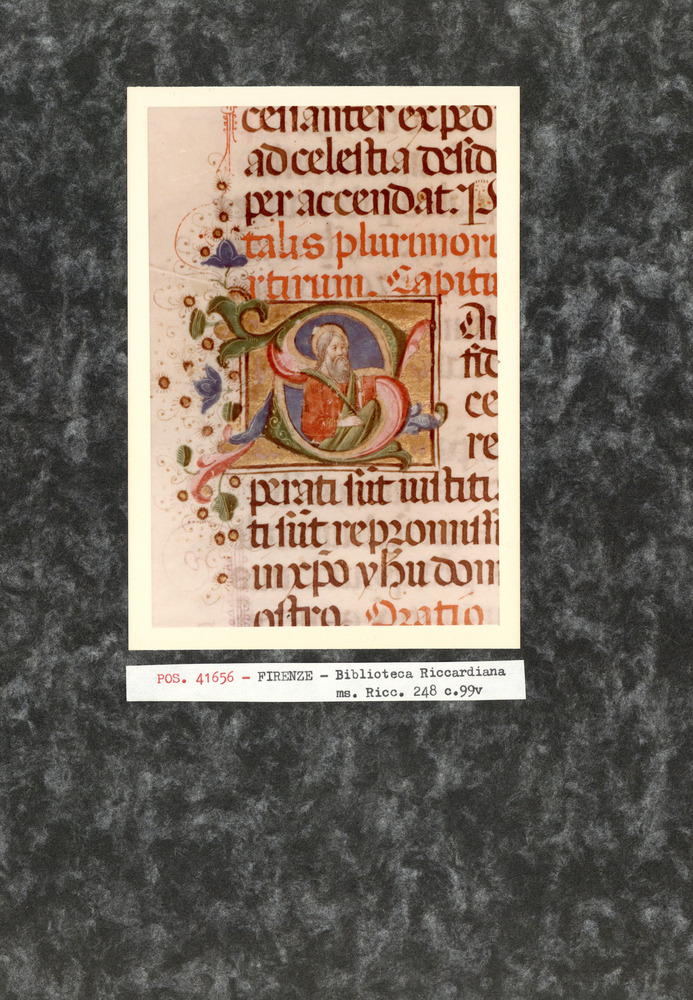 ceſſanter exped
ad celeſtia deſid
per accendat. I
talis plurimor
rtirum. Capitu
An
fid
ce
re
perati ſũt iuſtitia
ti ſũt repromiſſi
in xp̃o yħu dom
oſtro. Oratio
POS. 41656 - FIRENZE - Biblioteca Riccardiana
ms. Ricc. 248 c.99v